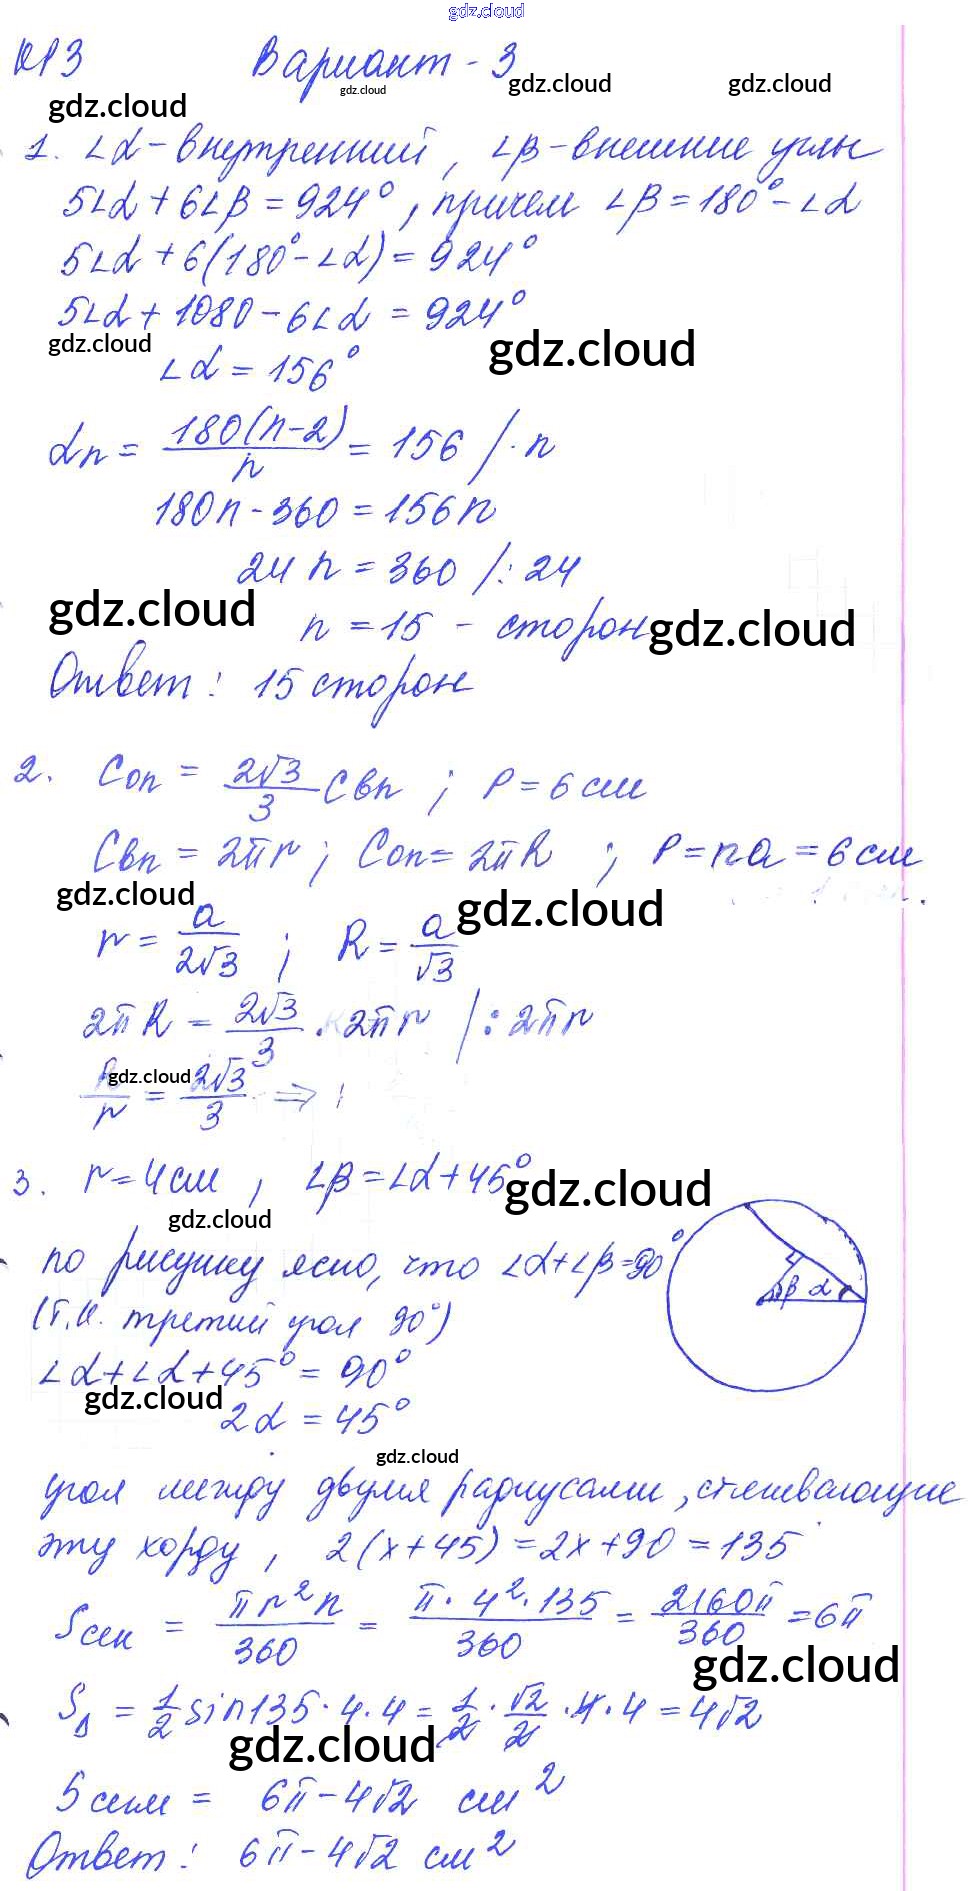 gdz.cloud
КР3 Вариант - 3
gdz.cloud gdz.cloud gdz.cloud gdz.cloud
1. ∠α - внутренний, ∠β - внешние углы
5∠α + 6∠β = 924°, причем ∠β = 180° - ∠α
5∠α + 6(180° - ∠α) = 924°
5∠α + 1080 - 6∠α = 924°
gdz.cloud gdz.cloud
∠α = 156°
αn = 180(n-2)/n = 156 /·n
180n - 360 = 156n
24n = 360 /: 24
gdz.cloud
n = 15 - сторон gdz.cloud
Ответ: 15 сторон
2. Cоп = 2√3/3 Cвп ; P = 6 см
Cвп = 2πr ; Cоп = 2πR ; P = na = 6 см
gdz.cloud gdz.cloud
r = a/2√3 ; R = a/√3
2πR = 2√3/3 · 2πr /: 2πr
gdz.cloud
R/r = 2√3/3 ⇒
3. r = 4 см, ∠β = ∠α + 45°
gdz.cloud
gdz.cloud
по рисунку ясно, что ∠α + ∠β = 90°
4 β α
(т.к. третий угол 90°)
∠α + ∠α + 45° = 90°
gdz.cloud
2α = 45°
gdz.cloud
угол между двумя радиусами, стягивающие
эту хорду, 2(x + 45) = 2x + 90 = 135
Sсек = πr²n/360 = π · 4² · 135/360 = 2160π/360 = 6π
gdz.cloud
SΔ = 1/2 sin135 · 4 · 4 = 1/2 · √2/2 · 4 · 4 = 4√2
gdz.cloud
Sсегм = 6π - 4√2 см²
Ответ: 6π - 4√2 см²